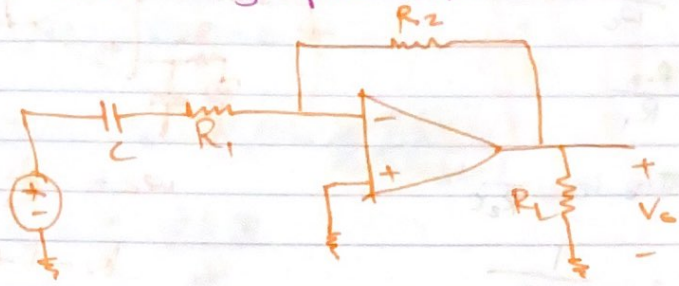 R2
C
R1
+
-
-
+
RL
+
Vo
-